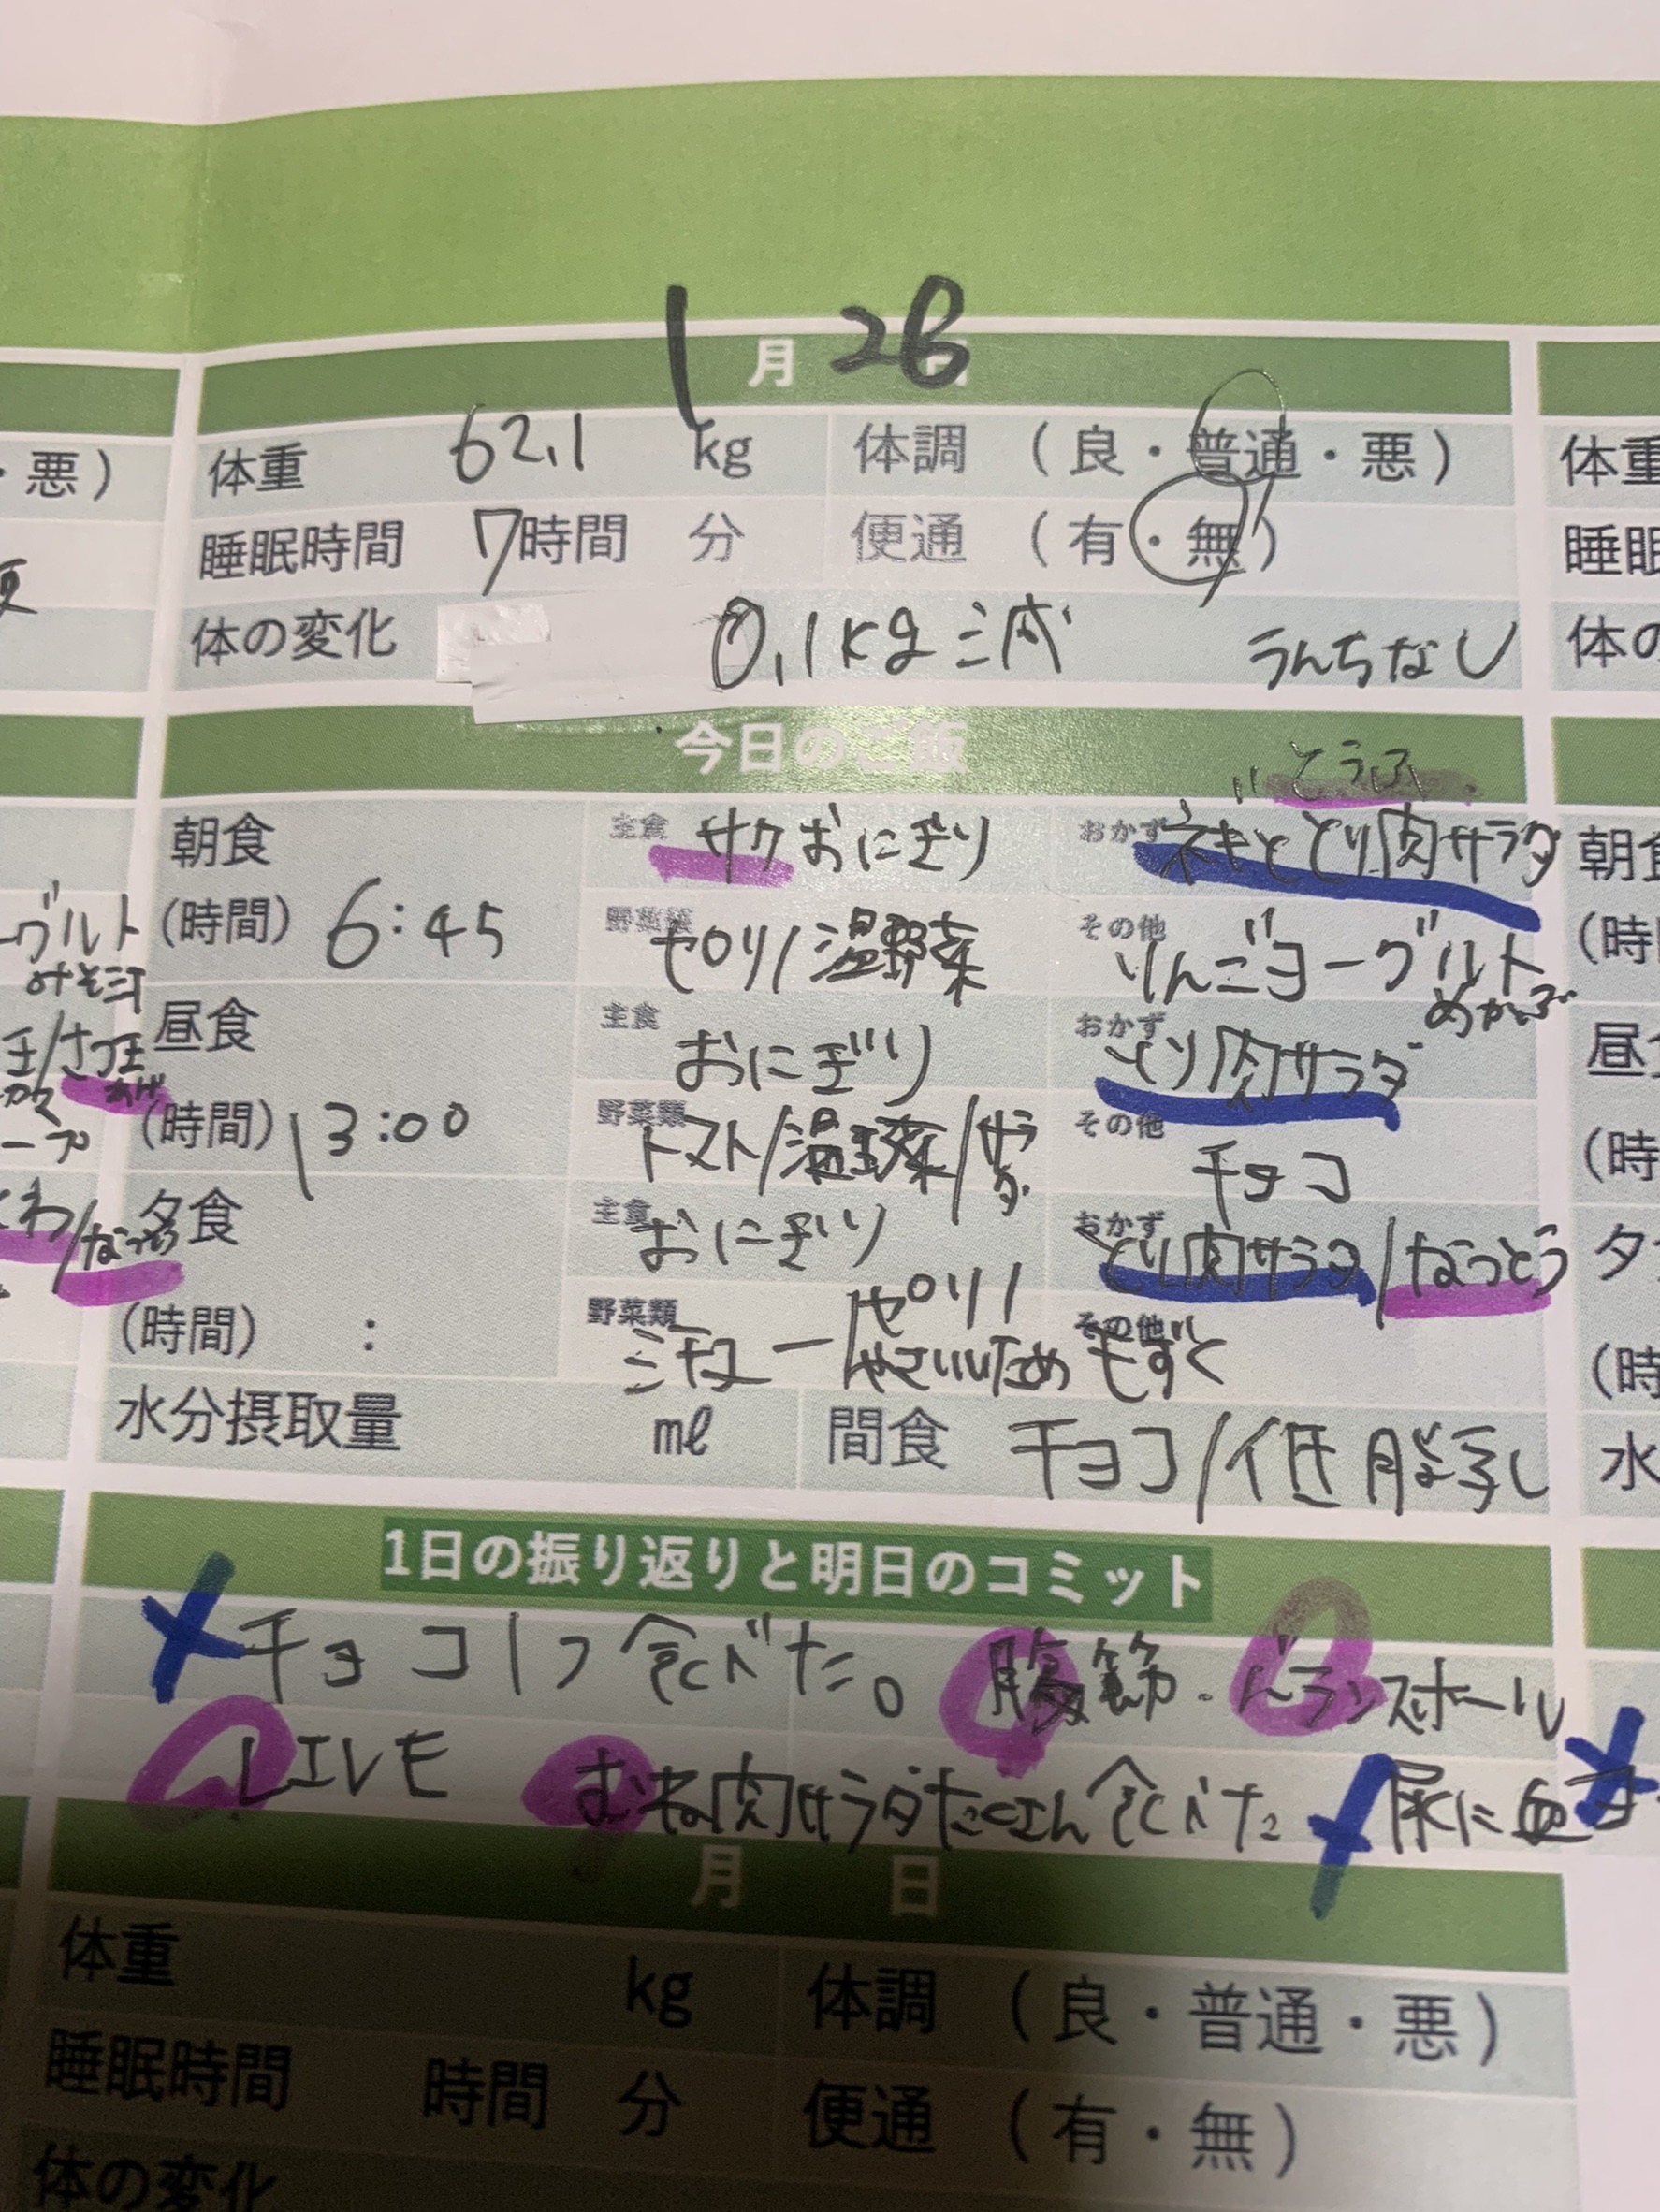 1月26日
・悪)
体重 62.1 kg 体調 (良・普通・悪) 体重
睡眠時間 7時間 分 便通 (有・無) 睡眠
体の変化 0.1kg減 うんちなし 体の
今日のご飯
とうふ
朝食 主食 サクおにぎり おかず ネギととり肉サラダ 朝食
(時間) 6:45 野菜類 セロリ/温野菜 その他 りんごヨーグルト (時
ーグルト
みそ汁
めかぶ
昼食 主食 おにぎり おかず とり肉サラダ 昼食
あげ
(時間) 13:00 野菜類 トマト/温野菜/サラダ その他 チョコ (時
ープ
夕食 主食 おにぎり おかず とり肉サラダ/なっとう 夕
くわ/なっとう
(時間) : 野菜類 シチュー/セロリ/やさいいため その他 もずく (時
水分摂取量 ml 間食 チョコ/低脂乳 水
1日の振り返りと明日のコミット
チョコ1つ食べた。 腹筋. バランスボール
LIEVE むね肉サラダたくさん食べた 尿に血
月 日
体重 kg 体調 (良・普通・悪)
睡眠時間 時間 分 便通 (有・無)
体の変化